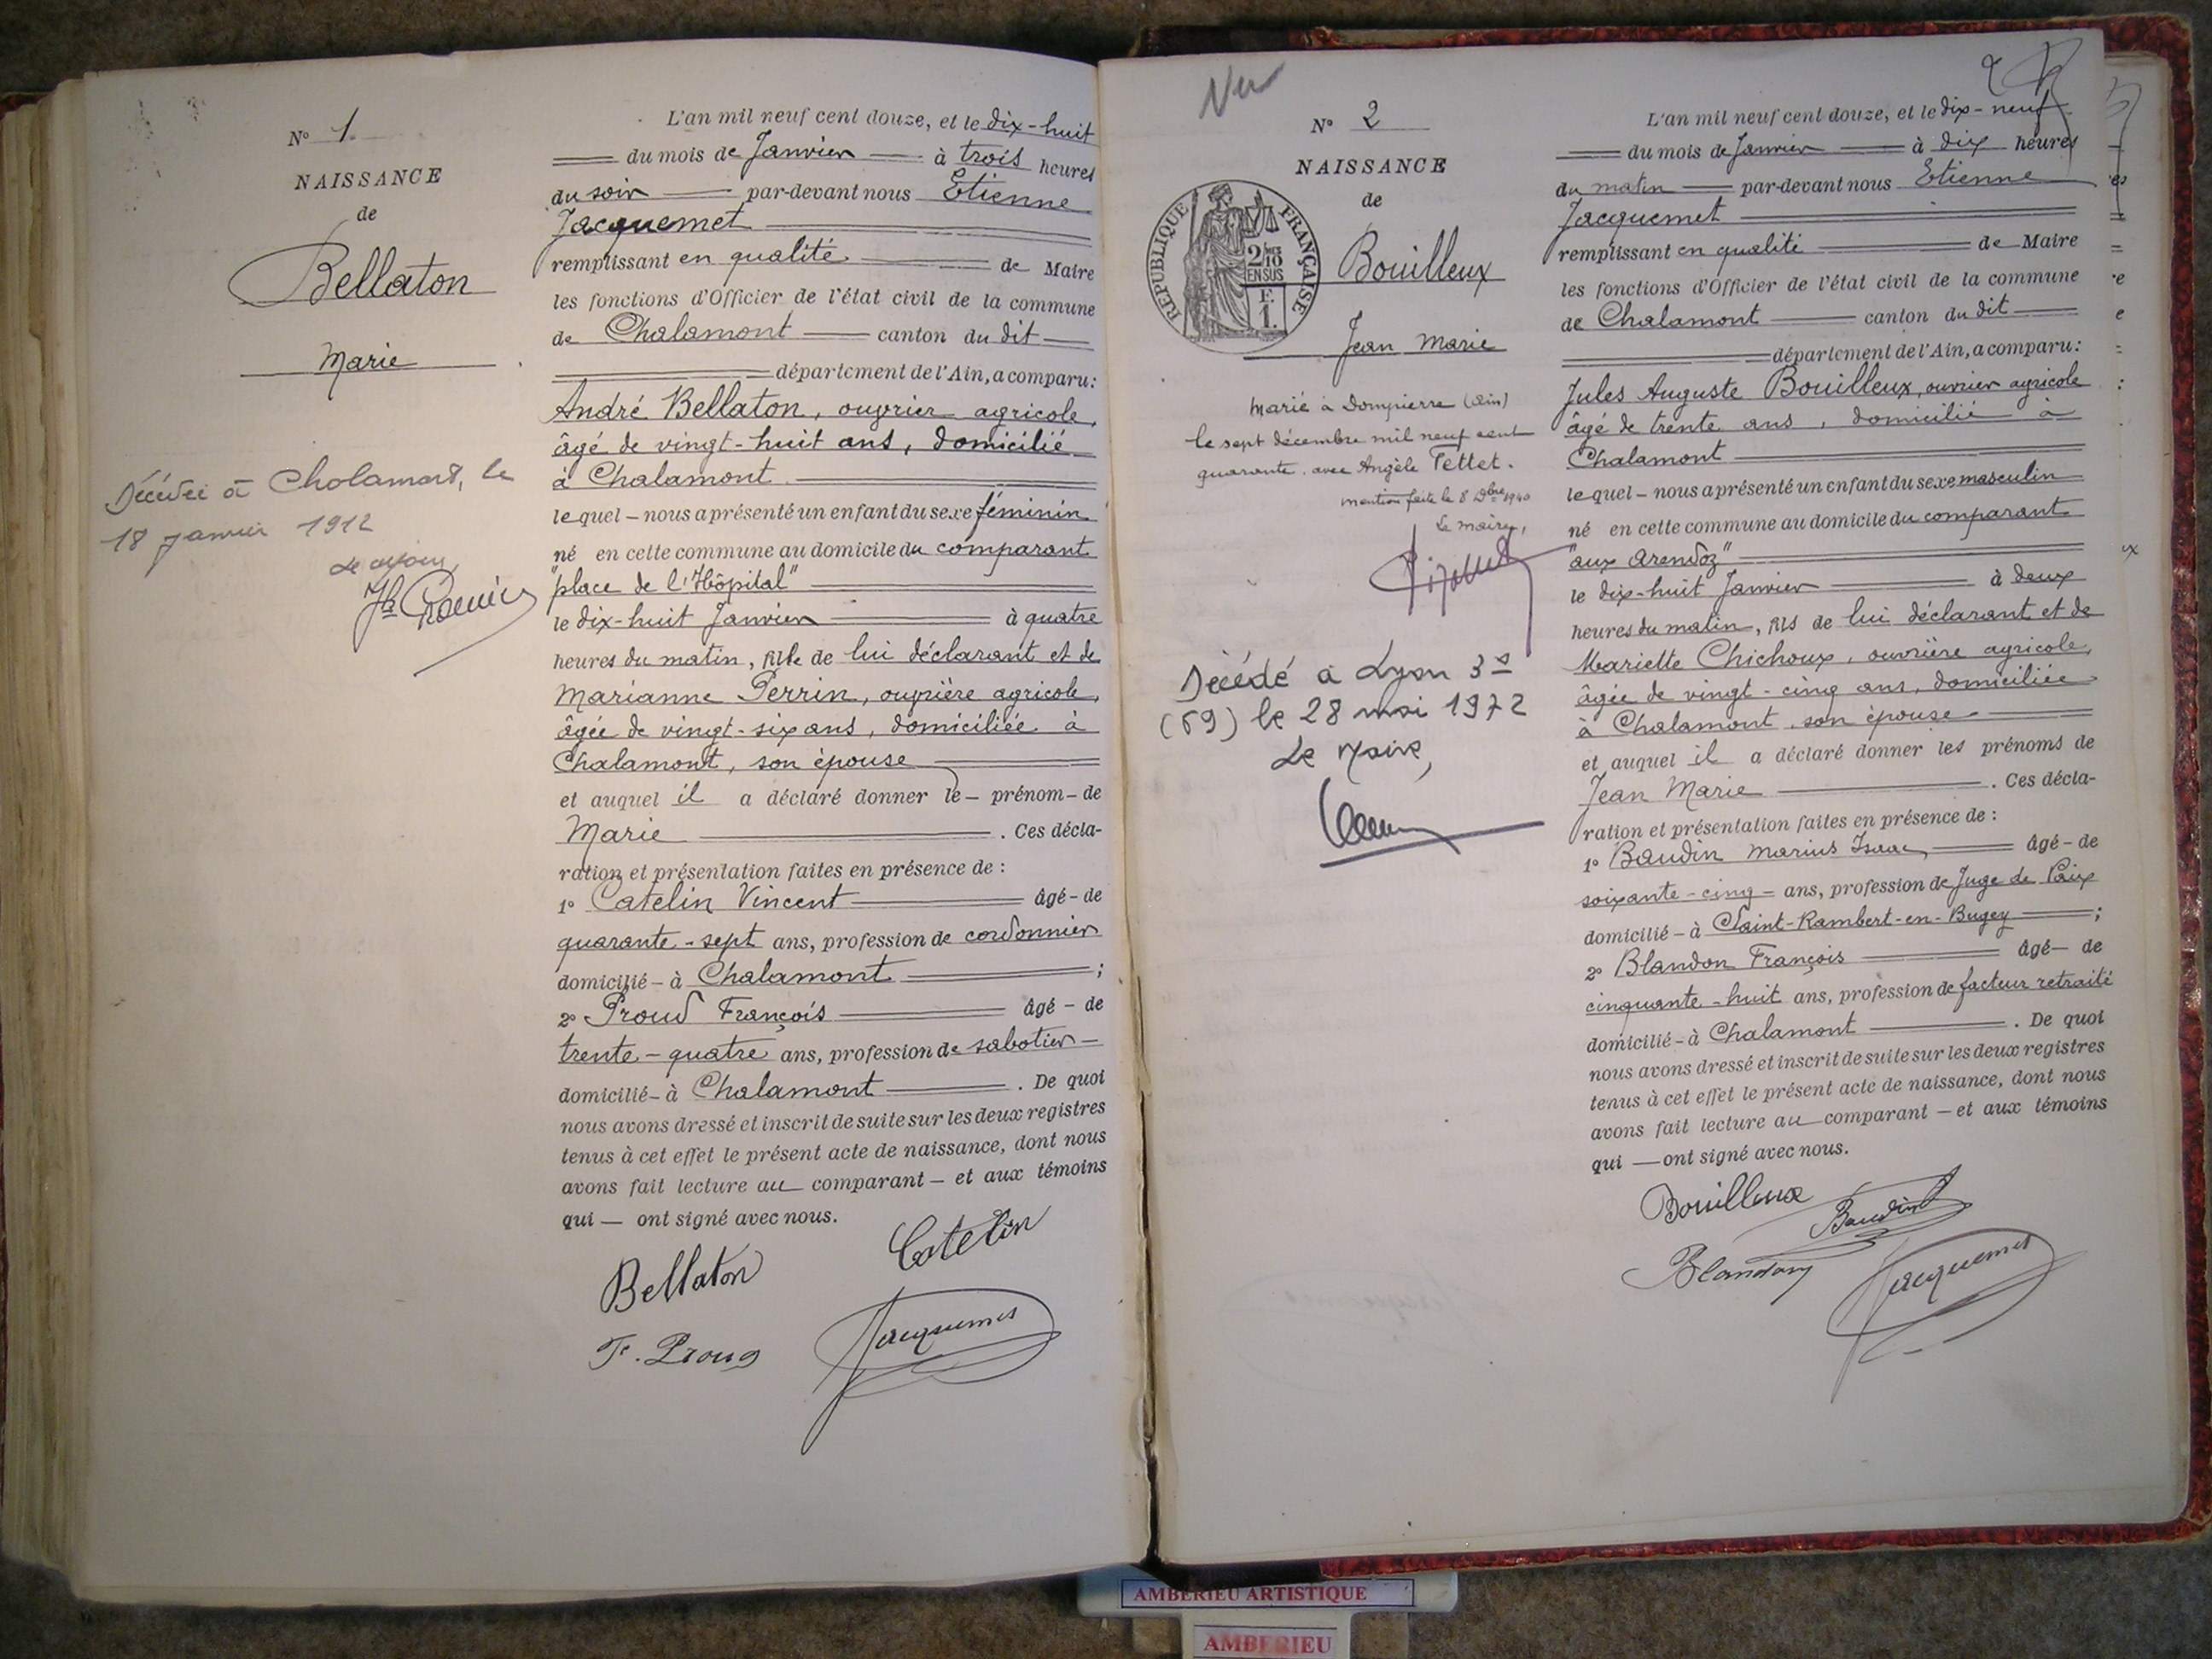 N° 1
NAISSANCE
de
Bellaton
Marie
Décédée à Chalamont, le
18 janvier 1912
L'an mil neuf cent douze, et le dix-huit
du mois de Janvier à trois heures
du soir par-devant nous Etienne
Jacquemet
remplissant en qualité de Maire
les fonctions d'Officier de l'état civil de la commune
de Chalamont canton du dit
département de l'Ain, a comparu:
André Bellaton, ouvrier agricole,
âgé de vingt-huit ans, domicilié
à Chalamont
lequel – nous a présenté un enfant du sexe féminin
né en cette commune au domicile du comparant
"place de l'Hôpital"
le dix-huit Janvier à quatre
heures du matin, fille de lui déclarant et de
Marianne Perrin, ouvrière agricole,
âgée de vingt-six ans, domiciliée à
Chalamont, son épouse
et auquel il a déclaré donner le – prénom – de
Marie . Ces décla-
ration et présentation faites en présence de :
1° Catelin Vincent âgé - de
quarante-sept ans, profession de cordonnier
domicilié – à Chalamont ;
2° Proud François âgé - de
trente-quatre ans, profession de sabotier –
domicilié – à Chalamont . De quoi
nous avons dressé et inscrit de suite sur les deux registres
tenus à cet effet le présent acte de naissance, dont nous
avons fait lecture au comparant – et aux témoins
qui — ont signé avec nous.
Bellaton Catelin
F. Proud Jacquemet
Vu
N° 2
NAISSANCE
de
REPUBLIQUE FRANÇAISE
2/10
EN SUS
F.
1.
Bouilleux
Jean Marie
Marié à Dompierre (Ain)
le sept décembre mil neuf cent
quarante avec Angèle Tettet.
mention faite le 8 Dbre 1940
Le maire,
Décédé à Lyon 3e
(69) le 28 mai 1972
Le Maire,
2
L'an mil neuf cent douze, et le dix-neuf
du mois de Janvier à dix heures
du matin par-devant nous Etienne
Jacquemet
remplissant en qualité de Maire
les fonctions d'Officier de l'état civil de la commune
de Chalamont canton du dit
département de l'Ain, a comparu:
Jules Auguste Bouilleux, ouvrier agricole
âgé de trente ans, domicilié à
Chalamont
lequel – nous a présenté un enfant du sexe masculin
né en cette commune au domicile du comparant
"aux Arendoz"
le dix-huit Janvier à deux
heures du matin, fils de lui déclarant et de
Mariette Chichoux, ouvrière agricole,
âgée de vingt-cinq ans, domiciliée
à Chalamont, son épouse
et auquel il a déclaré donner les prénoms de
Jean Marie . Ces décla-
ration et présentation faites en présence de :
1° Baudin Marius Isaac, âgé - de
soixante-cinq – ans, profession de Juge de Paix
domicilié – à Saint-Rambert-en-Bugey ;
2° Blandon François âgé — de
cinquante-huit ans, profession de facteur retraité
domicilié – à Chalamont . De quoi
nous avons dressé et inscrit de suite sur les deux registres
tenus à cet effet le présent acte de naissance, dont nous
avons fait lecture au comparant – et aux témoins
qui — ont signé avec nous.
Bouilleux Baudin
Blandon Jacquemet
AMBERIEU ARTISTIQUE
AMBERIEU